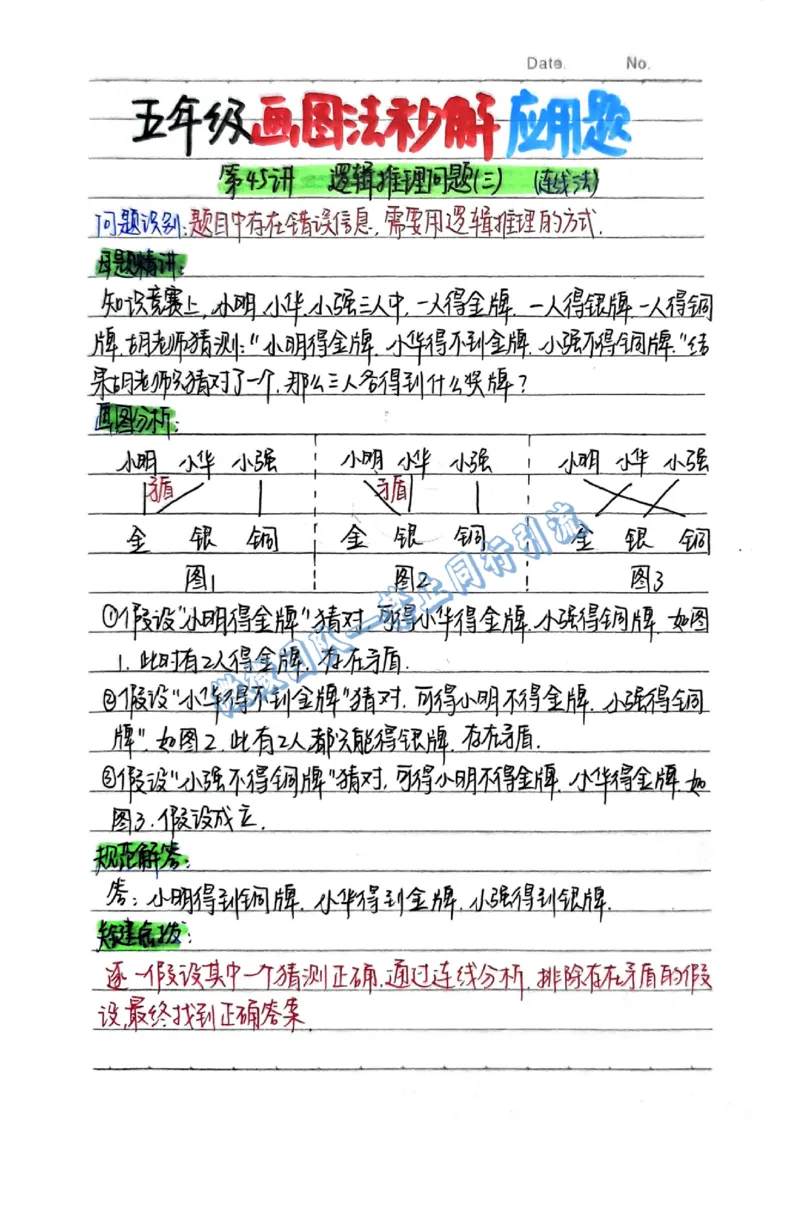 Date. No.
五年级画图法秒解应用题
第45讲 逻辑推理问题(三) (连线法)
问题识别:题目中存在错误信息,需要用逻辑推理的方式.
母题精讲:
知识竞赛上,小明,小华,小强三人中,一人得金牌.一人得银牌.一人得铜
牌.胡老师猜测:"小明得金牌.小华得不到金牌.小强不得铜牌."结
果胡老师只猜对了一个.那么三人各得到什么奖牌?
画图分析:
小明 小华 小强 小明 小华 小强 小明 小华 小强
矛盾 矛盾
金 银 铜 金 银 铜 金 银 铜
图1 图2 图3
①假设"小明得金牌"猜对.可得小华得金牌.小强得铜牌.如图
1.此时有2人得金牌.存在矛盾.
②假设"小华得不到金牌"猜对.可得小明不得金牌.小强得铜
牌".如图2.此有2人都只能得银牌.存在矛盾.
③假设"小强不得铜牌"猜对.可得小明不得金牌.小华得金牌.如
图3.假设成立.
规范解答:
答:小明得到铜牌.小华得到金牌.小强得到银牌.
关键点拨:
逐一假设其中一个猜测正确.通过连线分析.排除存在矛盾的假
设,最终找到正确答案.